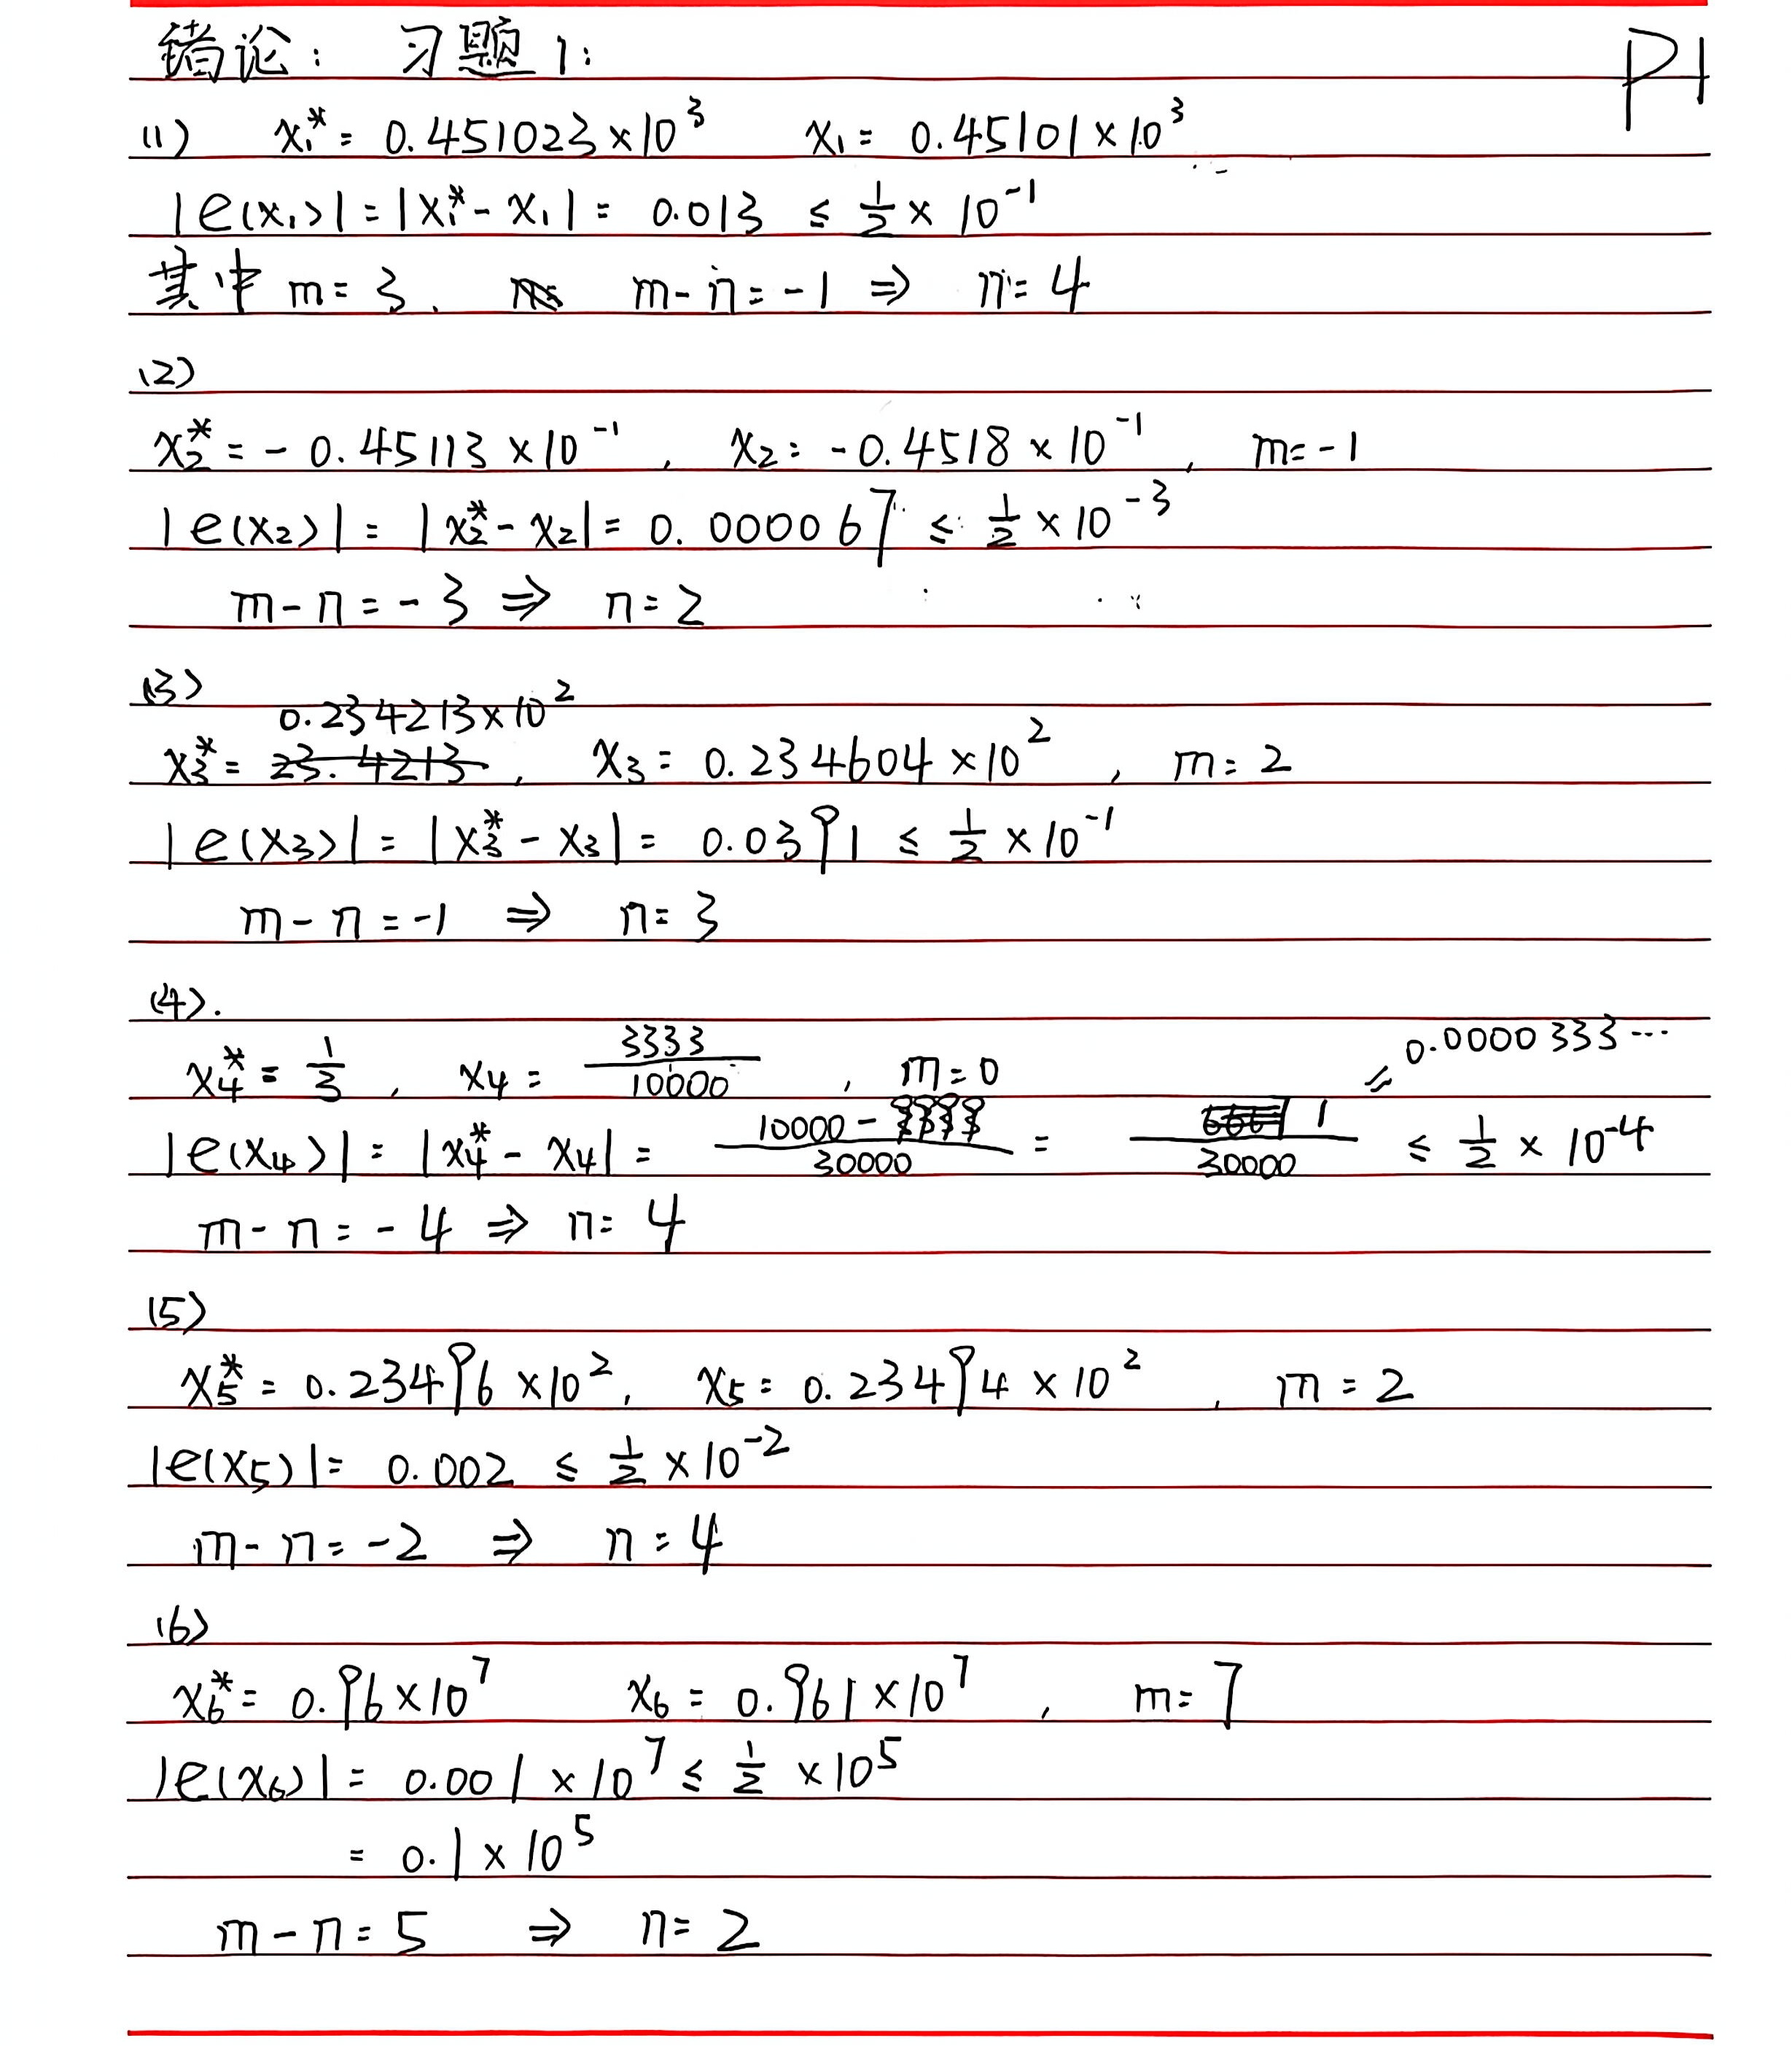 绪论: 习题1: P1
(1) x₁* = 0.451023×10³ x₁ = 0.45101×10³
|e(x₁)| = |x₁* - x₁| = 0.013 ≤ ½ × 10⁻¹
其中 m = 3, m - n = -1 ⇒ n = 4
(2)
x₂* = -0.45113×10⁻¹, x₂ = -0.4518×10⁻¹, m = -1
|e(x₂)| = |x₂* - x₂| = 0.000067 ≤ ½ × 10⁻³
m - n = -3 ⇒ n = 2
(3)
0.234213×10²
x₃* = 23.4213, x₃ = 0.234604×10², m = 2
|e(x₃)| = |x₃* - x₃| = 0.0391 ≤ ½ × 10⁻¹
m - n = -1 ⇒ n = 3
(4).
x₄* = 1/3, x₄ = 3333/10000, m = 0 = 0.0000333…
|e(x₄)| = |x₄* - x₄| = (10000 - 9999)/30000 = 1/30000 ≤ ½ × 10⁻⁴
m - n = -4 ⇒ n = 4
(5)
x₅* = 0.23496×10², x₅ = 0.23494×10², m = 2
|e(x₅)| = 0.002 ≤ ½ × 10⁻²
m - n = -2 ⇒ n = 4
(6)
x₆* = 0.96×10⁷ x₆ = 0.961×10⁷, m = 7
|e(x₆)| = 0.001×10⁷ ≤ ½ × 10⁵
= 0.1×10⁵
m - n = 5 ⇒ n = 2